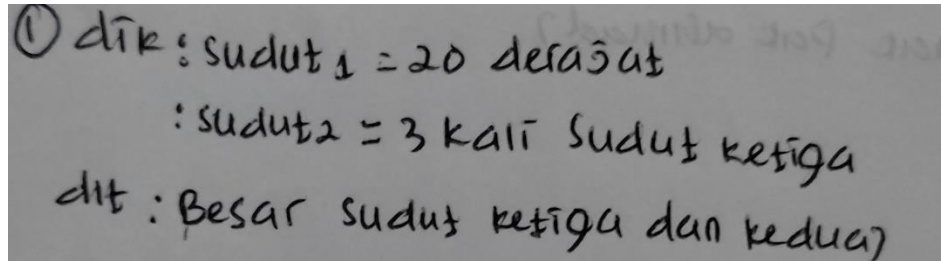 ① dik : sudut 1 = 20 derajat
: sudut2 = 3 kali sudut ketiga
dit : Besar sudut ketiga dan kedua?